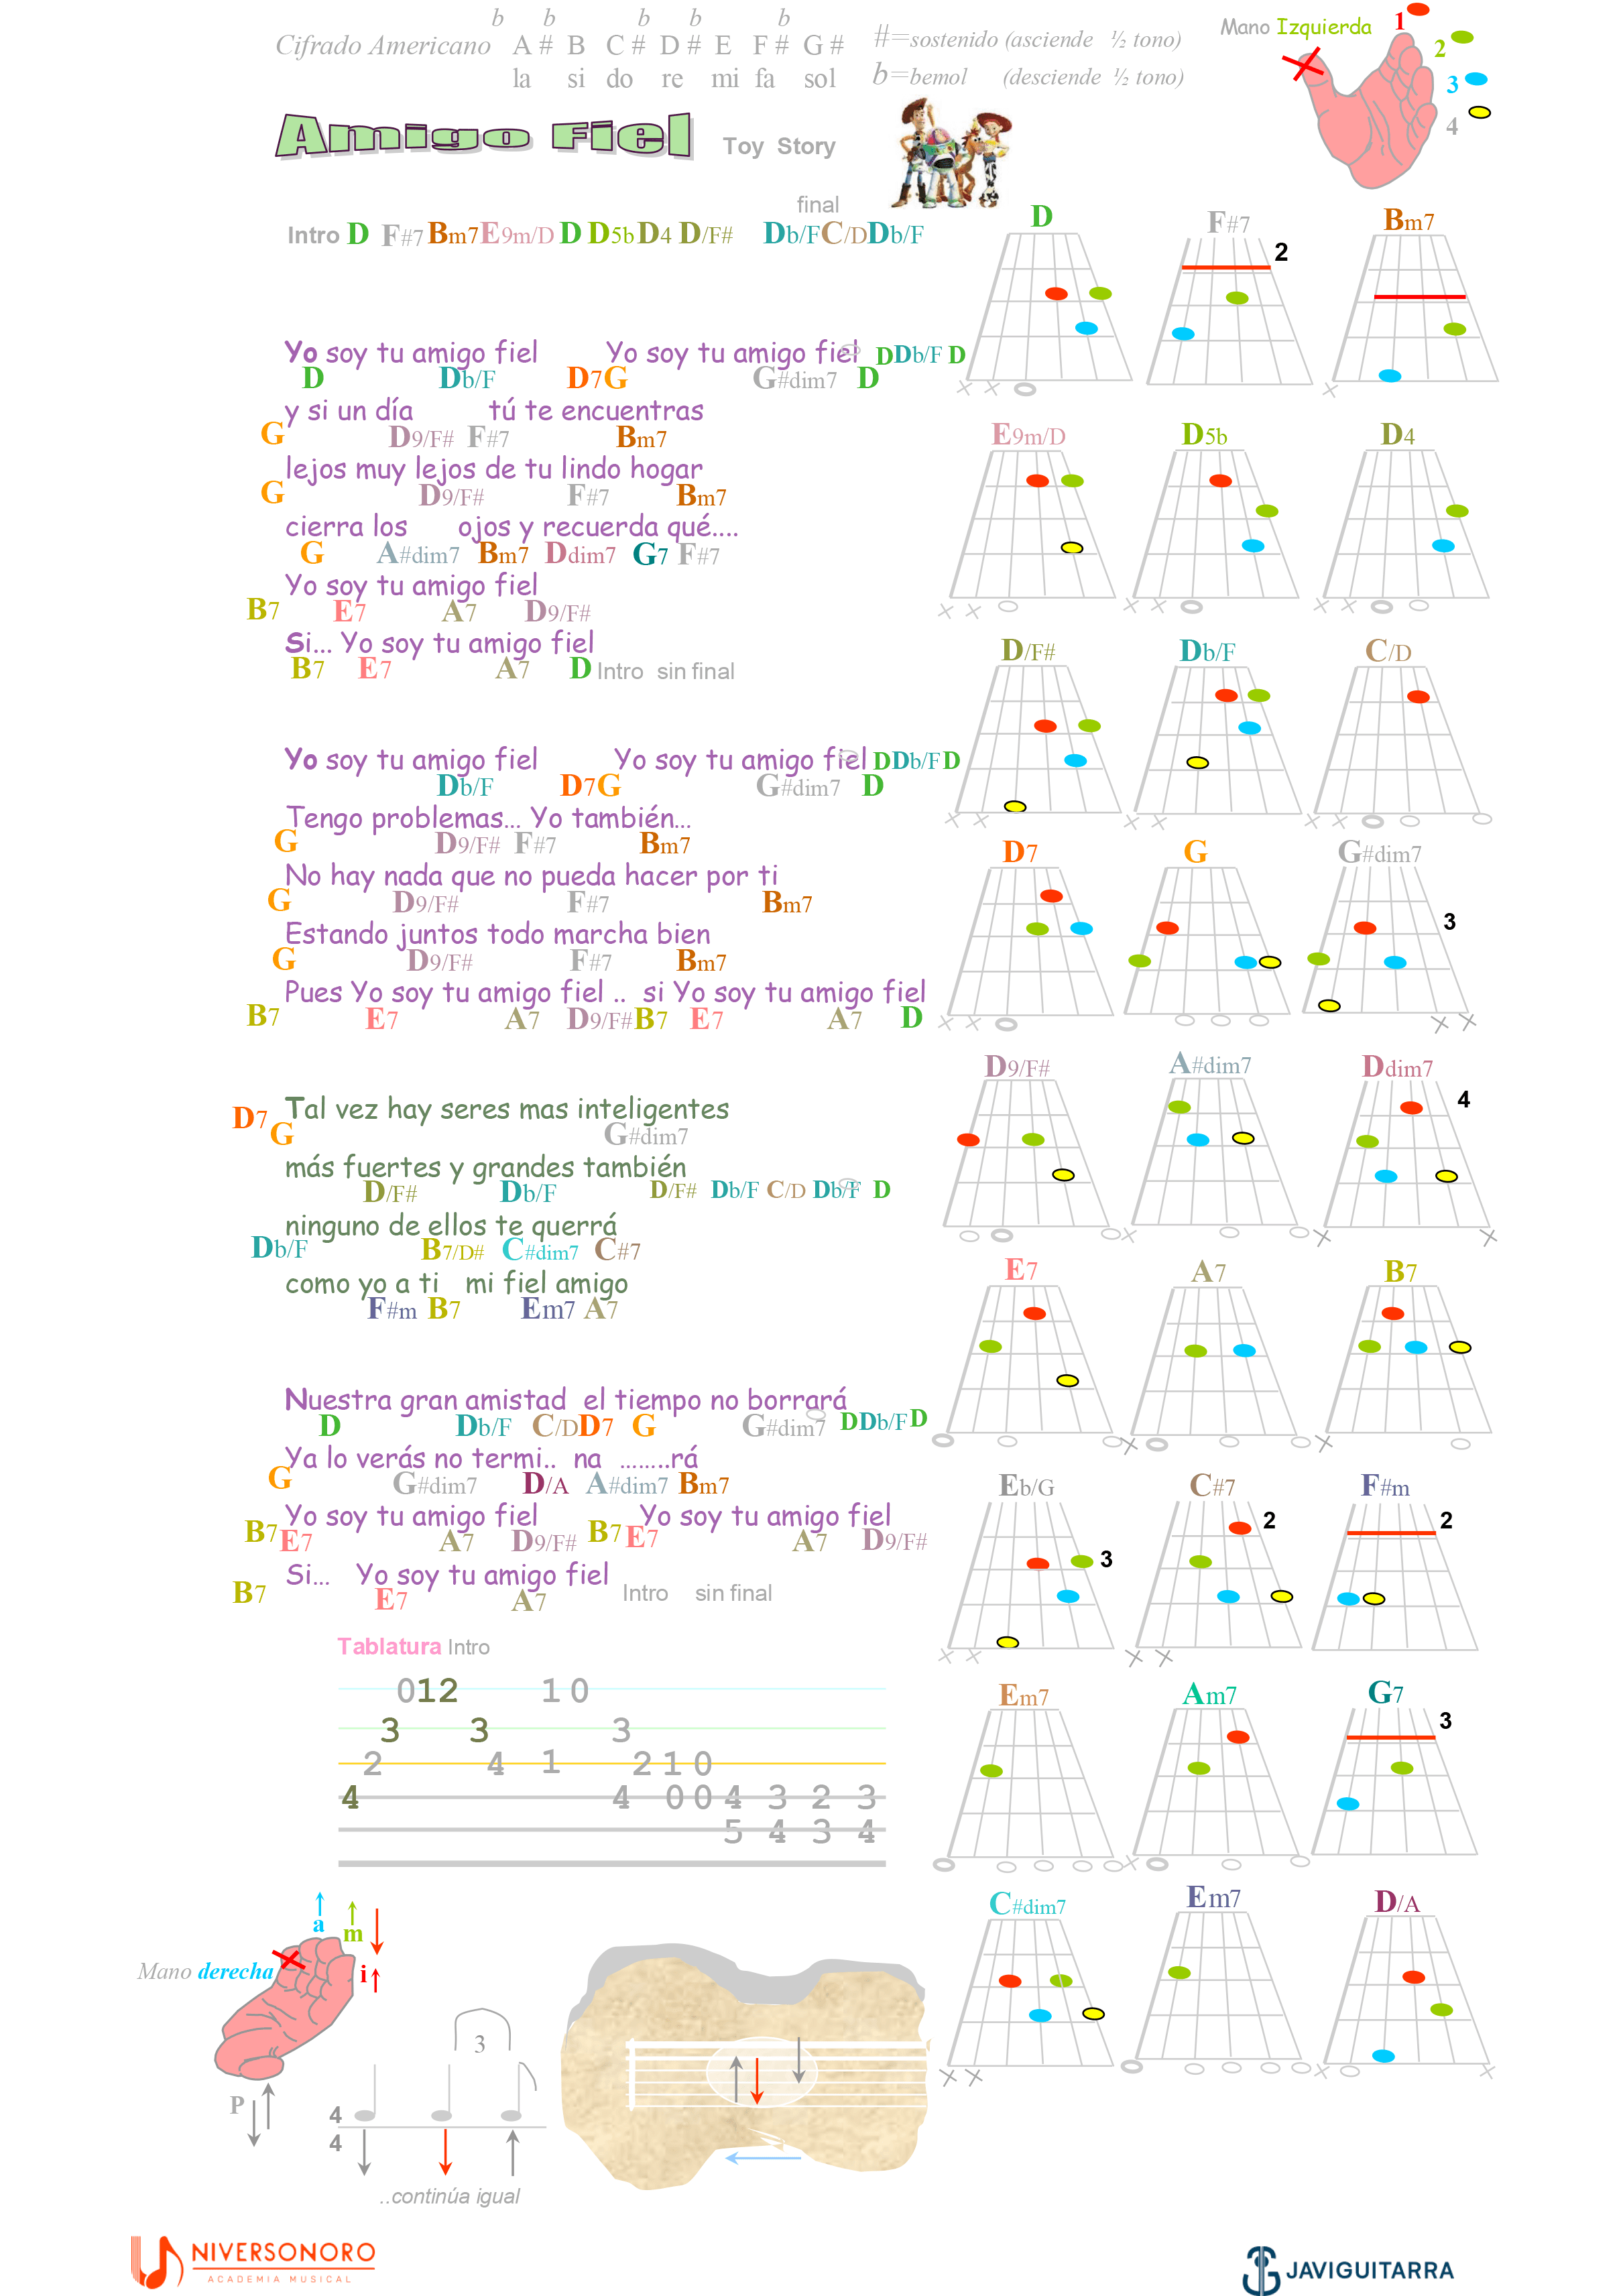 b b b b b
Cifrado Americano A # B C # D # E F # G #
la si do re mi fa sol
#=sostenido (asciende ½ tono)
b=bemol (desciende ½ tono)
Mano Izquierda
1
2
3
4
Amigo Fiel Toy Story
final
Intro D F#7 Bm7 E9m/D D D5b D4 D/F# Db/F C/D Db/F
Yo soy tu amigo fiel Yo soy tu amigo fiel D Db/F D
D Db/F D7 G G#dim7 D
y si un día tú te encuentras
G D9/F# F#7 Bm7
lejos muy lejos de tu lindo hogar
G D9/F# F#7 Bm7
cierra los ojos y recuerda qué....
G A#dim7 Bm7 Ddim7 G7 F#7
Yo soy tu amigo fiel
B7 E7 A7 D9/F#
Si... Yo soy tu amigo fiel
B7 E7 A7 D Intro sin final
Yo soy tu amigo fiel Yo soy tu amigo fiel D Db/F D
Db/F D7 G G#dim7 D
Tengo problemas... Yo también...
G D9/F# F#7 Bm7
No hay nada que no pueda hacer por ti
G D9/F# F#7 Bm7
Estando juntos todo marcha bien
G D9/F# F#7 Bm7
Pues Yo soy tu amigo fiel .. si Yo soy tu amigo fiel
B7 E7 A7 D9/F# B7 E7 A7 D
Tal vez hay seres mas inteligentes
D7 G G#dim7
más fuertes y grandes también
D/F# Db/F D/F# Db/F C/D Db/F D
ninguno de ellos te querrá
Db/F B7/D# C#dim7 C#7
como yo a ti mi fiel amigo
F#m B7 Em7 A7
Nuestra gran amistad el tiempo no borrará
D Db/F C/D D7 G G#dim7 D Db/F D
Ya lo verás no termi.. na ........rá
G G#dim7 D/A A#dim7 Bm7
Yo soy tu amigo fiel Yo soy tu amigo fiel
B7 E7 A7 D9/F# B7 E7 A7 D9/F#
Si... Yo soy tu amigo fiel
B7 E7 A7 Intro sin final
Tablatura Intro
0 1 2 1 0
3 3 3
2 4 1 2 1 0
4 4 0 0 4 3 2 3
5 4 3 4
D F#7 Bm7
2
x x x
E9m/D D5b D4
x x x x x x
D/F# Db/F C/D
x x x x x x
D7 G G#dim7
3
x x x x
D9/F# A#dim7 Ddim7
4
x x x
E7 A7 B7
x x
Eb/G C#7 F#m
2 2
3
x x x x
Em7 Am7 G7
3
x
C#dim7 Em7 D/A
x x x x
a
m
i
Mano derecha
P
3
4
4
..continúa igual
NIVERSONORO
ACADEMIA MUSICAL
JAVIGUITARRA